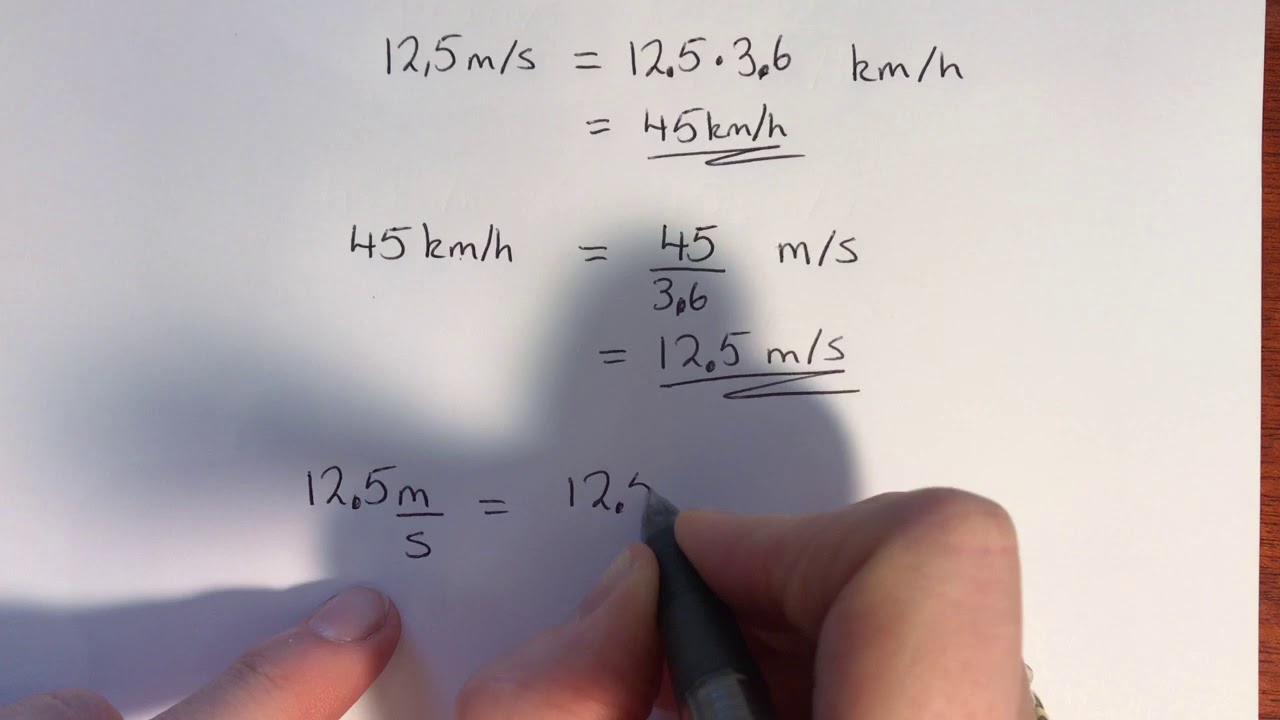 12,5 m/s = 12.5 · 3.6 km/h
= 45 km/h
45 km/h = 45/3.6 m/s
= 12.5 m/s
12.5 m/s = 12.5